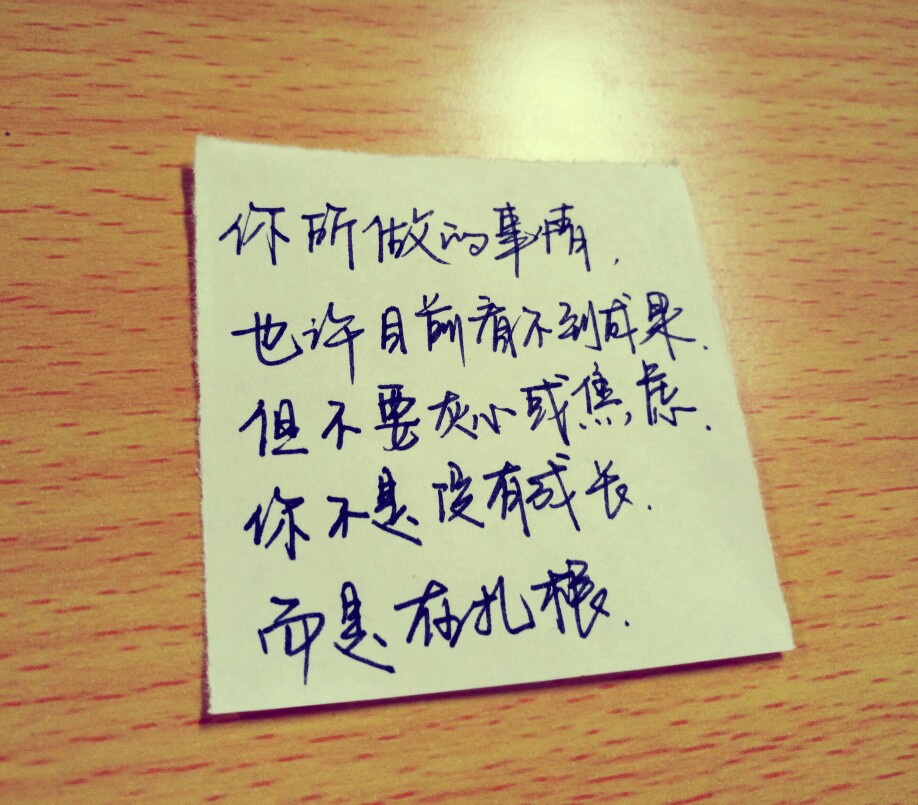 你所做的事情,
也许目前看不到成果.
但不要灰心或焦虑.
你不是没有成长.
而是在扎根.